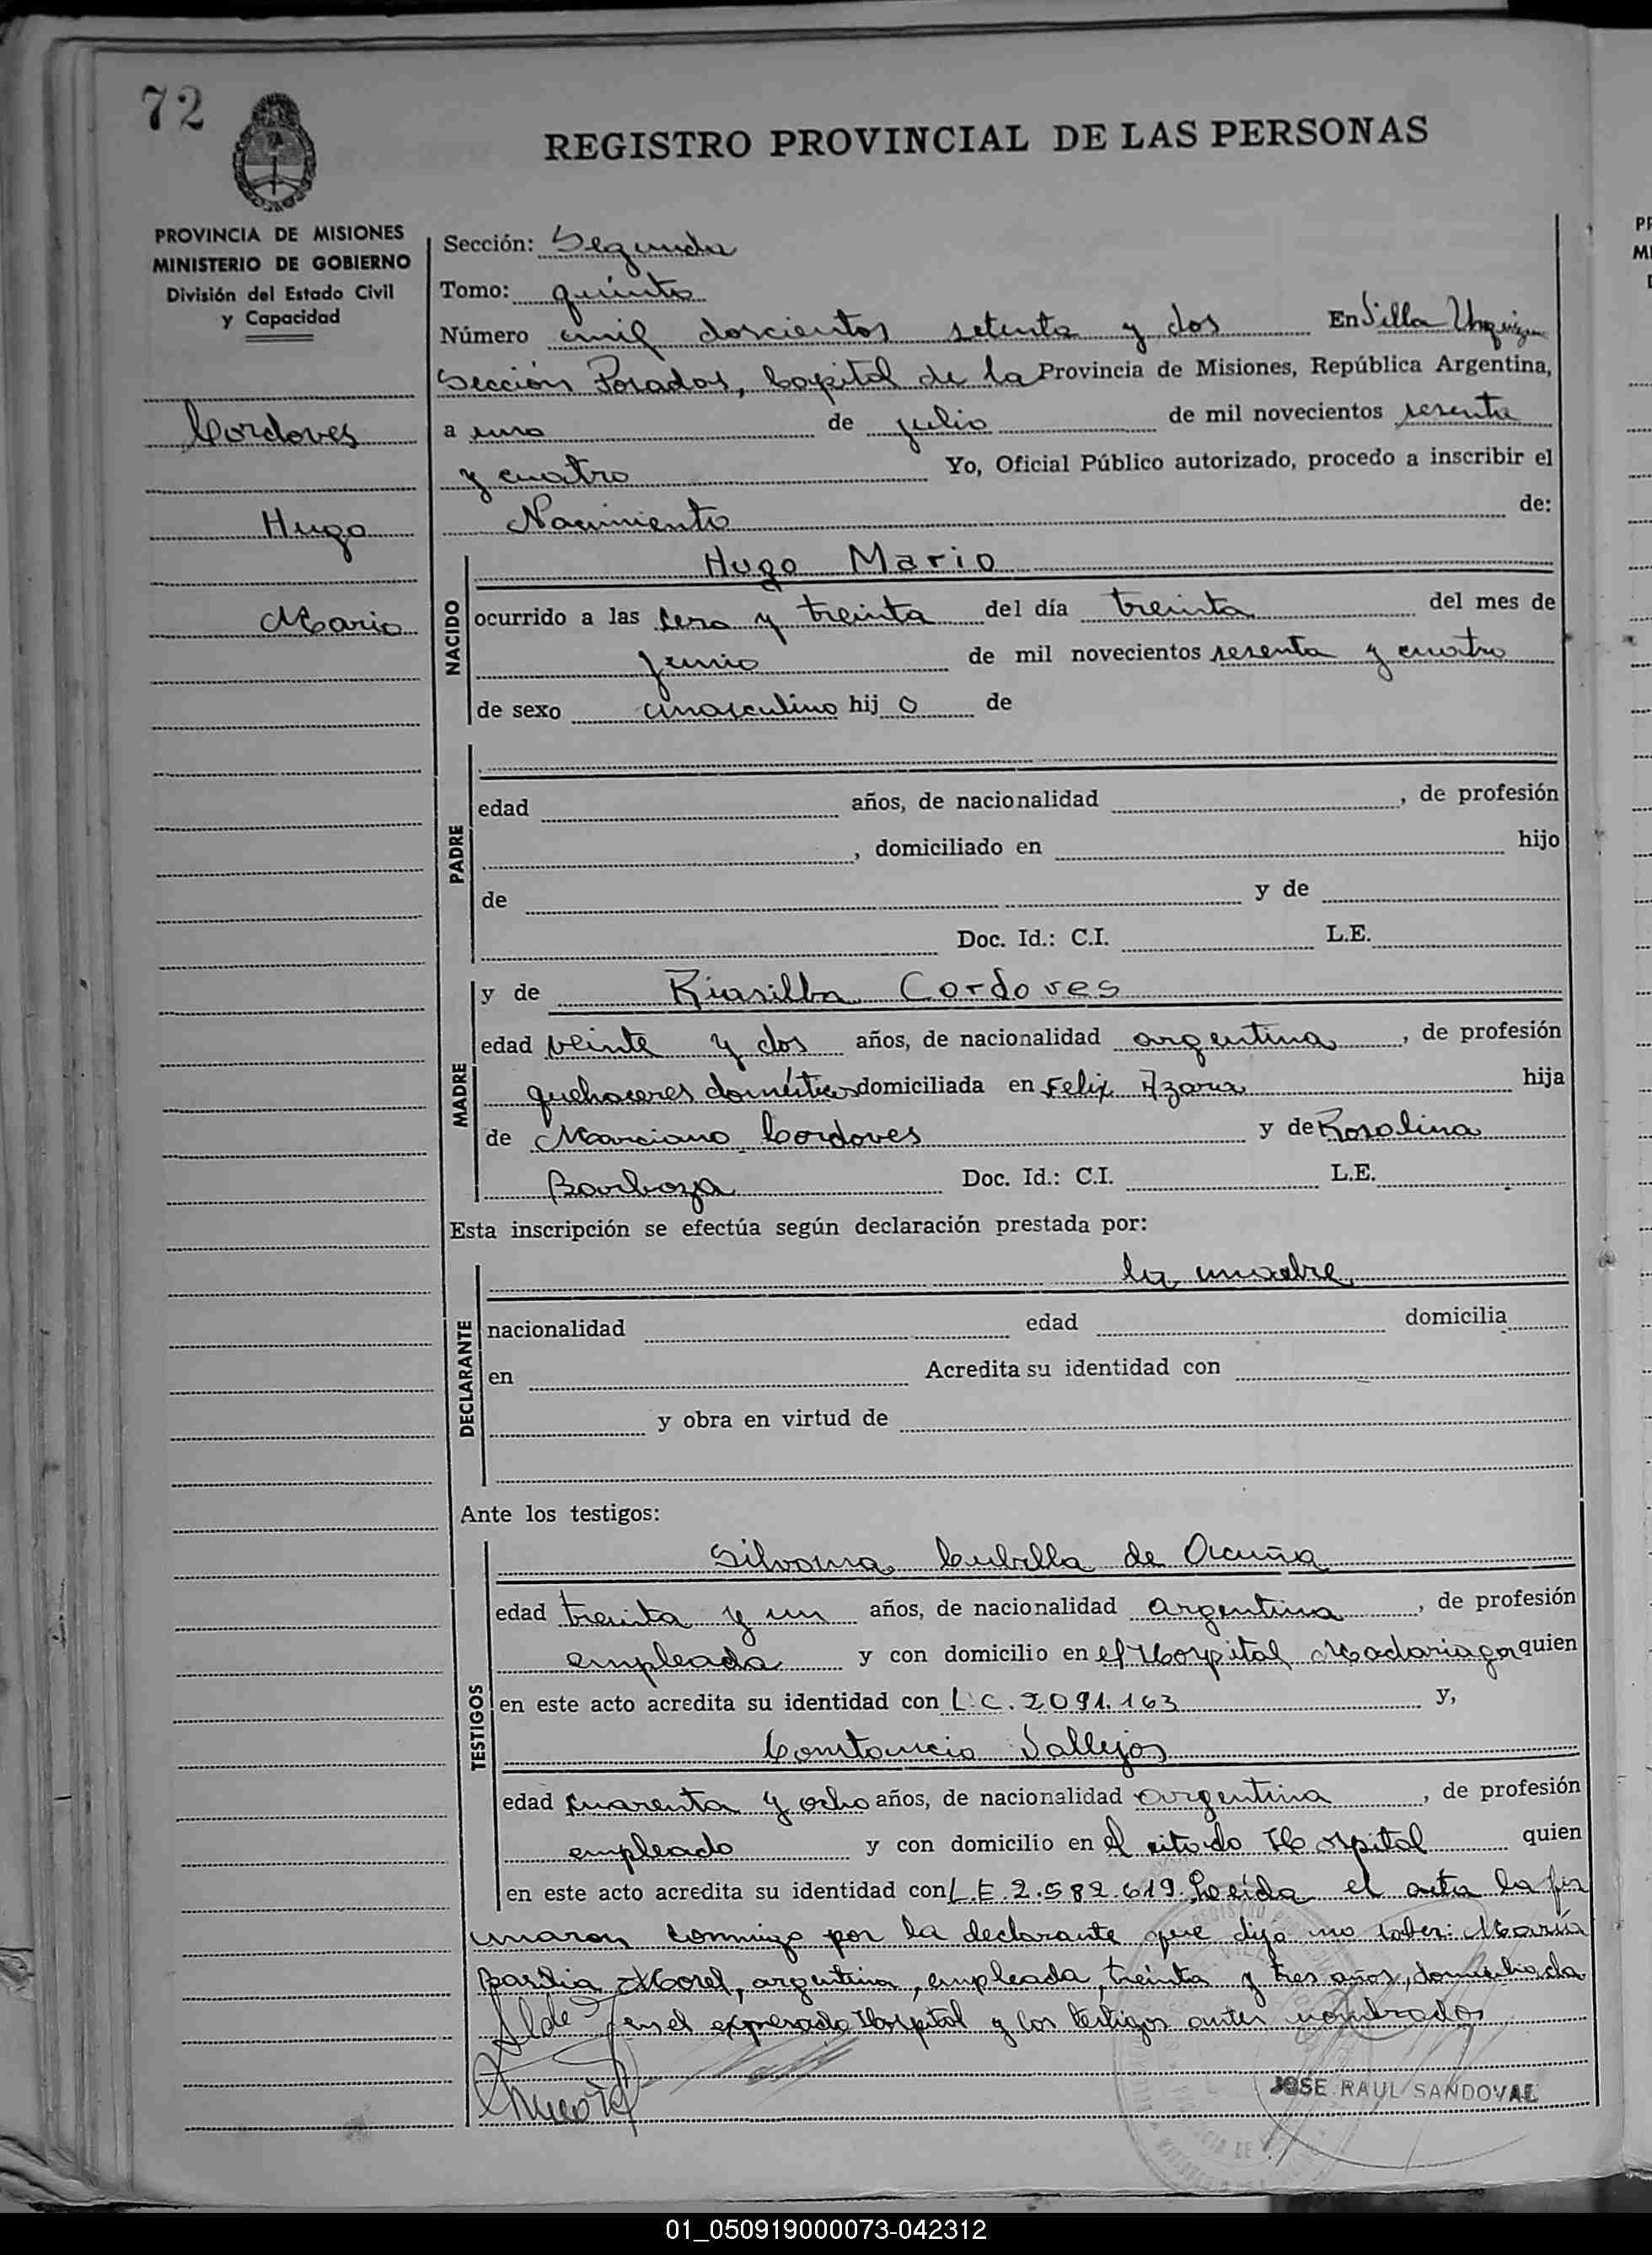 72
REGISTRO PROVINCIAL DE LAS PERSONAS
PROVINCIA DE MISIONES
MINISTERIO DE GOBIERNO
División del Estado Civil
y Capacidad
Cordoves
Hugo
Mario
Sección: Segunda
Tomo: quinto
Número mil doscientos setenta y dos En Villa Urquiza
Sección Posadas, Capital de la Provincia de Misiones, República Argentina,
a uno de julio de mil novecientos sesenta
y cuatro Yo, Oficial Público autorizado, procedo a inscribir el
Nacimiento de:
NACIDO
Hugo Mario
ocurrido a las cero y treinta del día treinta del mes de
junio de mil novecientos sesenta y cuatro
de sexo masculino hij o de
PADRE
edad años, de nacionalidad , de profesión
, domiciliado en hijo
de y de
Doc. Id.: C.I. L.E.
MADRE
y de Cordoves
edad veinte y dos años, de nacionalidad argentina, de profesión
quehaceres domésticos domiciliada en Felix Azara hija
de Marciano Cordoves y de Rosolina
Barboza Doc. Id.: C.I. L.E.
Esta inscripción se efectúa según declaración prestada por:
DECLARANTE
la madre
nacionalidad edad domicilia
en Acredita su identidad con
y obra en virtud de
Ante los testigos:
TESTIGOS
Silvana Cubilla de Acuña
edad treinta y un años, de nacionalidad argentina, de profesión
empleada y con domicilio en el Hospital Madariaga quien
en este acto acredita su identidad con L.C. 2091.163 y,
Constancio Vallejos
edad cuarenta y ocho años, de nacionalidad argentina, de profesión
empleado y con domicilio en el citado Hospital quien
en este acto acredita su identidad con L.E. 2.582.619. Leída el acta la fir
maron conmigo por la declarante que dijo no saber: María
Basilia Morel, argentina, empleada, treinta y tres años, domiciliada
en el expresado Hospital y los testigos antes nombrados
JOSE RAUL SANDOVAL
01_050919000073-042312